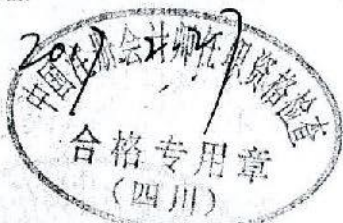 中国注册会计师任职资格检查
合格专用章
（四川）